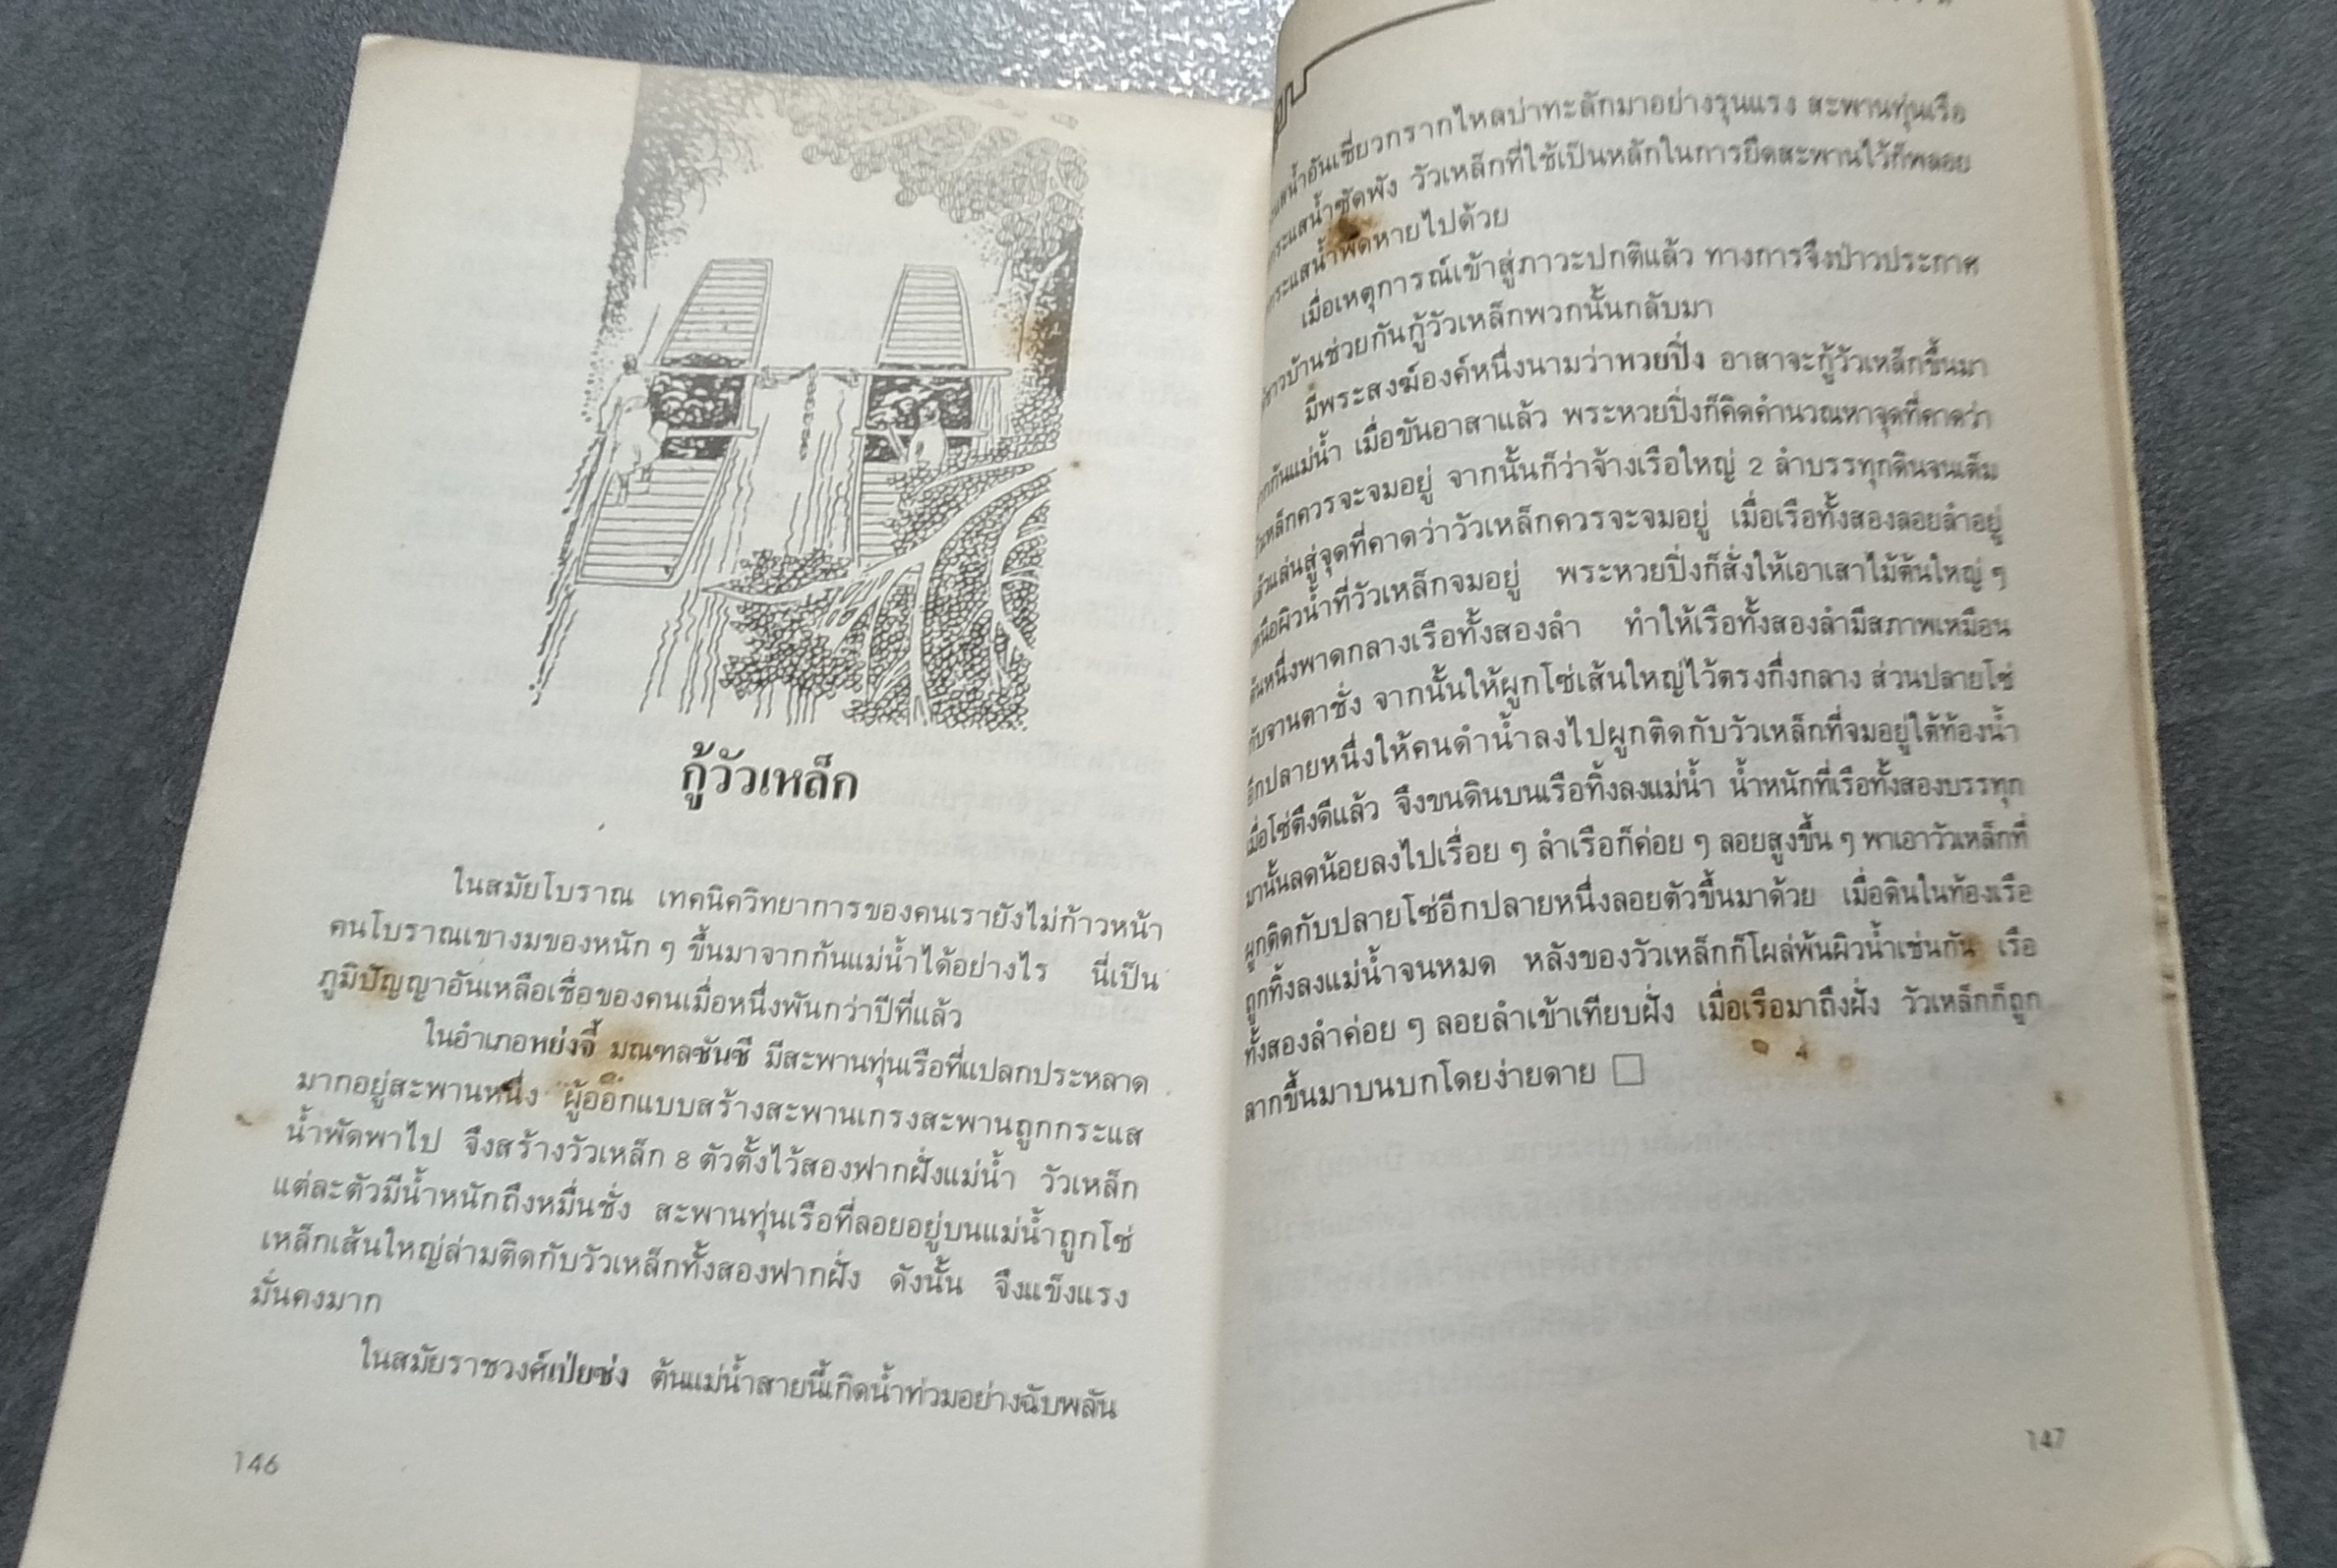 กู้วัวเหล็ก
ในสมัยโบราณ เทคนิควิทยาการของคนเรายังไม่ก้าวหน้า
คนโบราณเขางมของหนัก ๆ ขึ้นมาจากก้นแม่น้ำได้อย่างไร นี่เป็น
ภูมิปัญญาอันเหลือเชื่อของคนเมื่อหนึ่งพันกว่าปีที่แล้ว
ในอำเภอหย่งจี้ มณฑลซันซี มีสะพานทุ่นเรือที่แปลกประหลาด
มากอยู่สะพานหนึ่ง ผู้ออกแบบสร้างสะพานเกรงสะพานถูกกระแส
น้ำพัดพาไป จึงสร้างวัวเหล็ก 8 ตัวตั้งไว้สองฟากฝั่งแม่น้ำ วัวเหล็ก
แต่ละตัวมีน้ำหนักถึงหมื่นชั่ง สะพานทุ่นเรือที่ลอยอยู่บนแม่น้ำถูกโซ่
เหล็กเส้นใหญ่ล่ามติดกับวัวเหล็กทั้งสองฟากฝั่ง ดังนั้น จึงแข็งแรง
มั่นคงมาก
ในสมัยราชวงศ์เป่ยซ่ง ต้นแม่น้ำสายนี้เกิดน้ำท่วมอย่างฉับพลัน
146
น้ำอันเชี่ยวกรากไหลบ่าทะลักมาอย่างรุนแรง สะพานทุ่นเรือ
กระแสน้ำซัดพัง วัวเหล็กที่ใช้เป็นหลักในการยึดสะพานไว้ก็พลอย
กระแสน้ำพัดหายไปด้วย
เมื่อเหตุการณ์เข้าสู่ภาวะปกติแล้ว ทางการจึงป่าวประกาศ
ชาวบ้านช่วยกันกู้วัวเหล็กพวกนั้นกลับมา
มีพระสงฆ์องค์หนึ่งนามว่าหวยปิ่ง อาสาจะกู้วัวเหล็กขึ้นมา
ก้นแม่น้ำ เมื่อขันอาสาแล้ว พระหวยปิ่งก็คิดคำนวณหาจุดที่คาดว่า
เหล็กควรจะจมอยู่ จากนั้นก็ว่าจ้างเรือใหญ่ 2 ลำบรรทุกดินจนเต็ม
แล้วแล่นสู่จุดที่คาดว่าวัวเหล็กควรจะจมอยู่ เมื่อเรือทั้งสองลอยลำอยู่
เหนือผิวน้ำที่วัวเหล็กจมอยู่ พระหวยปิ่งก็สั่งให้เอาเสาไม้ต้นใหญ่ ๆ
ต้นหนึ่งพาดกลางเรือทั้งสองลำ ทำให้เรือทั้งสองลำมีสภาพเหมือน
กับจานตาชั่ง จากนั้นให้ผูกโซ่เส้นใหญ่ไว้ตรงกึ่งกลาง ส่วนปลายโซ่
อีกปลายหนึ่งให้คนดำน้ำลงไปผูกติดกับวัวเหล็กที่จมอยู่ใต้ท้องน้ำ
เมื่อโซ่ตึงดีแล้ว จึงขนดินบนเรือทิ้งลงแม่น้ำ น้ำหนักที่เรือทั้งสองบรรทุก
มานั้นลดน้อยลงไปเรื่อย ๆ ลำเรือก็ค่อย ๆ ลอยสูงขึ้น ๆ พาเอาวัวเหล็กที่
ผูกติดกับปลายโซ่อีกปลายหนึ่งลอยตัวขึ้นมาด้วย เมื่อดินในท้องเรือ
ถูกทิ้งลงแม่น้ำจนหมด หลังของวัวเหล็กก็โผล่พ้นผิวน้ำเช่นกัน เรือ
ทั้งสองลำค่อย ๆ ลอยลำเข้าเทียบฝั่ง เมื่อเรือมาถึงฝั่ง วัวเหล็กก็ถูก
ลากขึ้นมาบนบกโดยง่ายดาย □
147